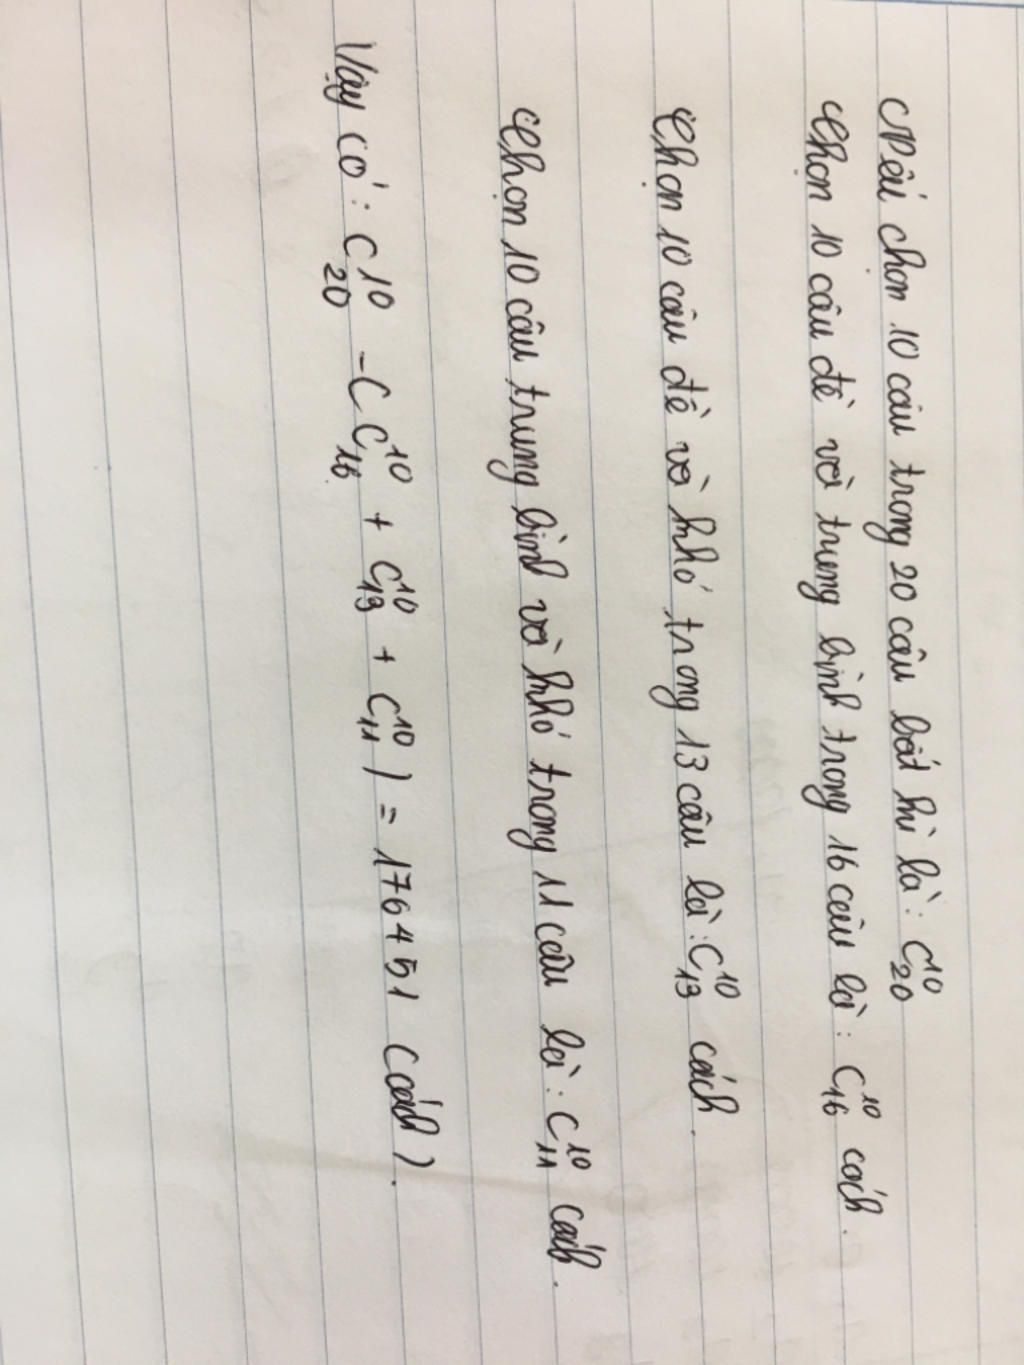 Nếu chọn 10 câu trong 20 câu bất kì là: C₂₀¹⁰
Chọn 10 câu dễ và trung bình trong 16 câu là: C₁₆¹⁰ cách.
Chọn 10 câu dễ và khó trong 13 câu là: C₁₃¹⁰ cách.
Chọn 10 câu trung bình và khó trong 11 câu là: C₁₁¹⁰ cách.
Vậy có: C₂₀¹⁰ - ( C₁₆¹⁰ + C₁₃¹⁰ + C₁₁¹⁰ ) = 176451 (cách).